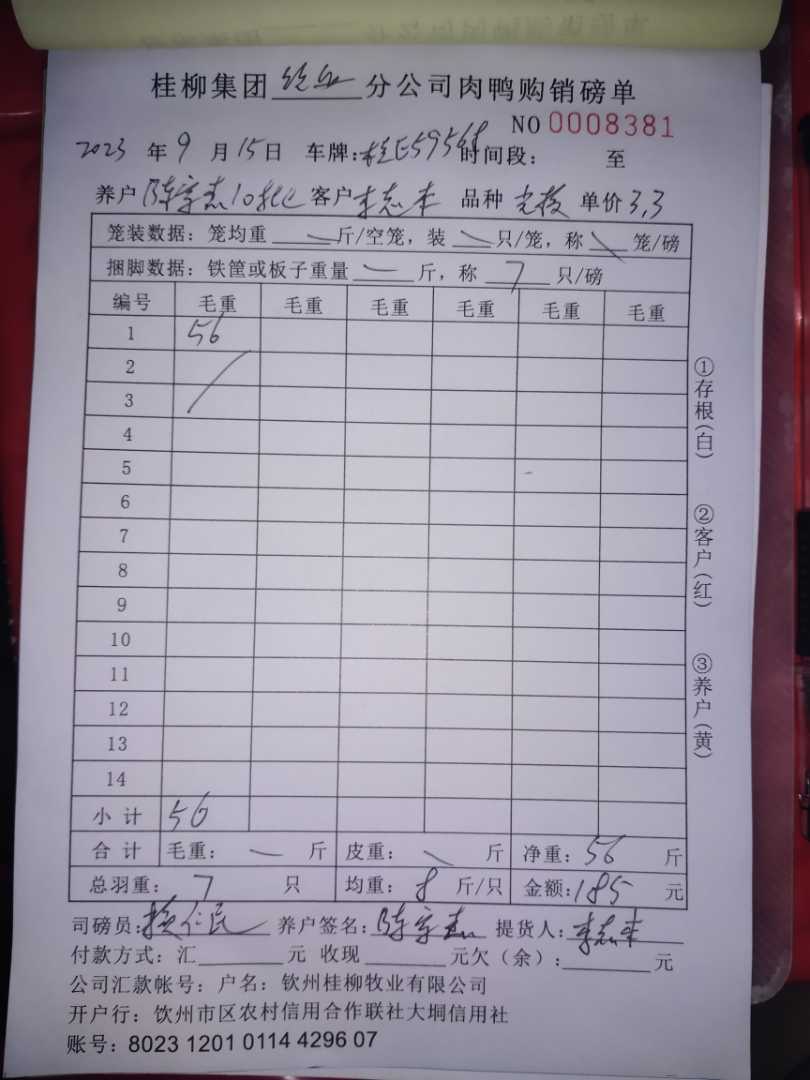 桂柳集团 分公司肉鸭购销磅单
NO 0008381
2023 年 9 月 15 日 车牌: 时间段: 至
养户 陈 10批 客户 李志 品种 单价 3.3
笼装数据: 笼均重 — 斤/空笼, 装 — 只/笼, 称 \ 笼/磅
捆脚数据: 铁筐或板子重量 — 斤, 称 7 只/磅
编号 毛重 毛重 毛重 毛重 毛重 毛重
1 56
2
3
4
5
6
7
8
9
10
11
12
13
14
小计 56
合计 毛重: — 斤 皮重: \ 斤 净重: 56 斤
总羽重: 7 只 均重: 8 斤/只 金额: 185 元
司磅员: 仁民 养户签名: 陈 提货人: 李志
付款方式: 汇 元 收现 元欠(余): 元
公司汇款帐号: 户名: 钦州桂柳牧业有限公司
开户行: 饮州市区农村信用合作联社大垌信用社
账号: 8023 1201 0114 4296 07
①存根(白)
②客户(红)
③养户(黄)